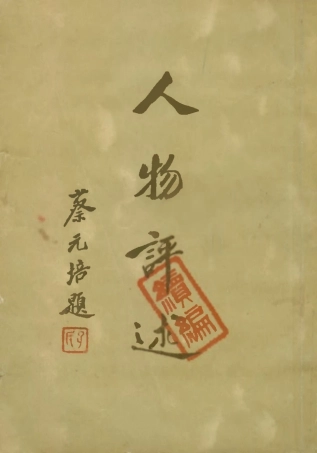 人物評述
續編
蔡元培題